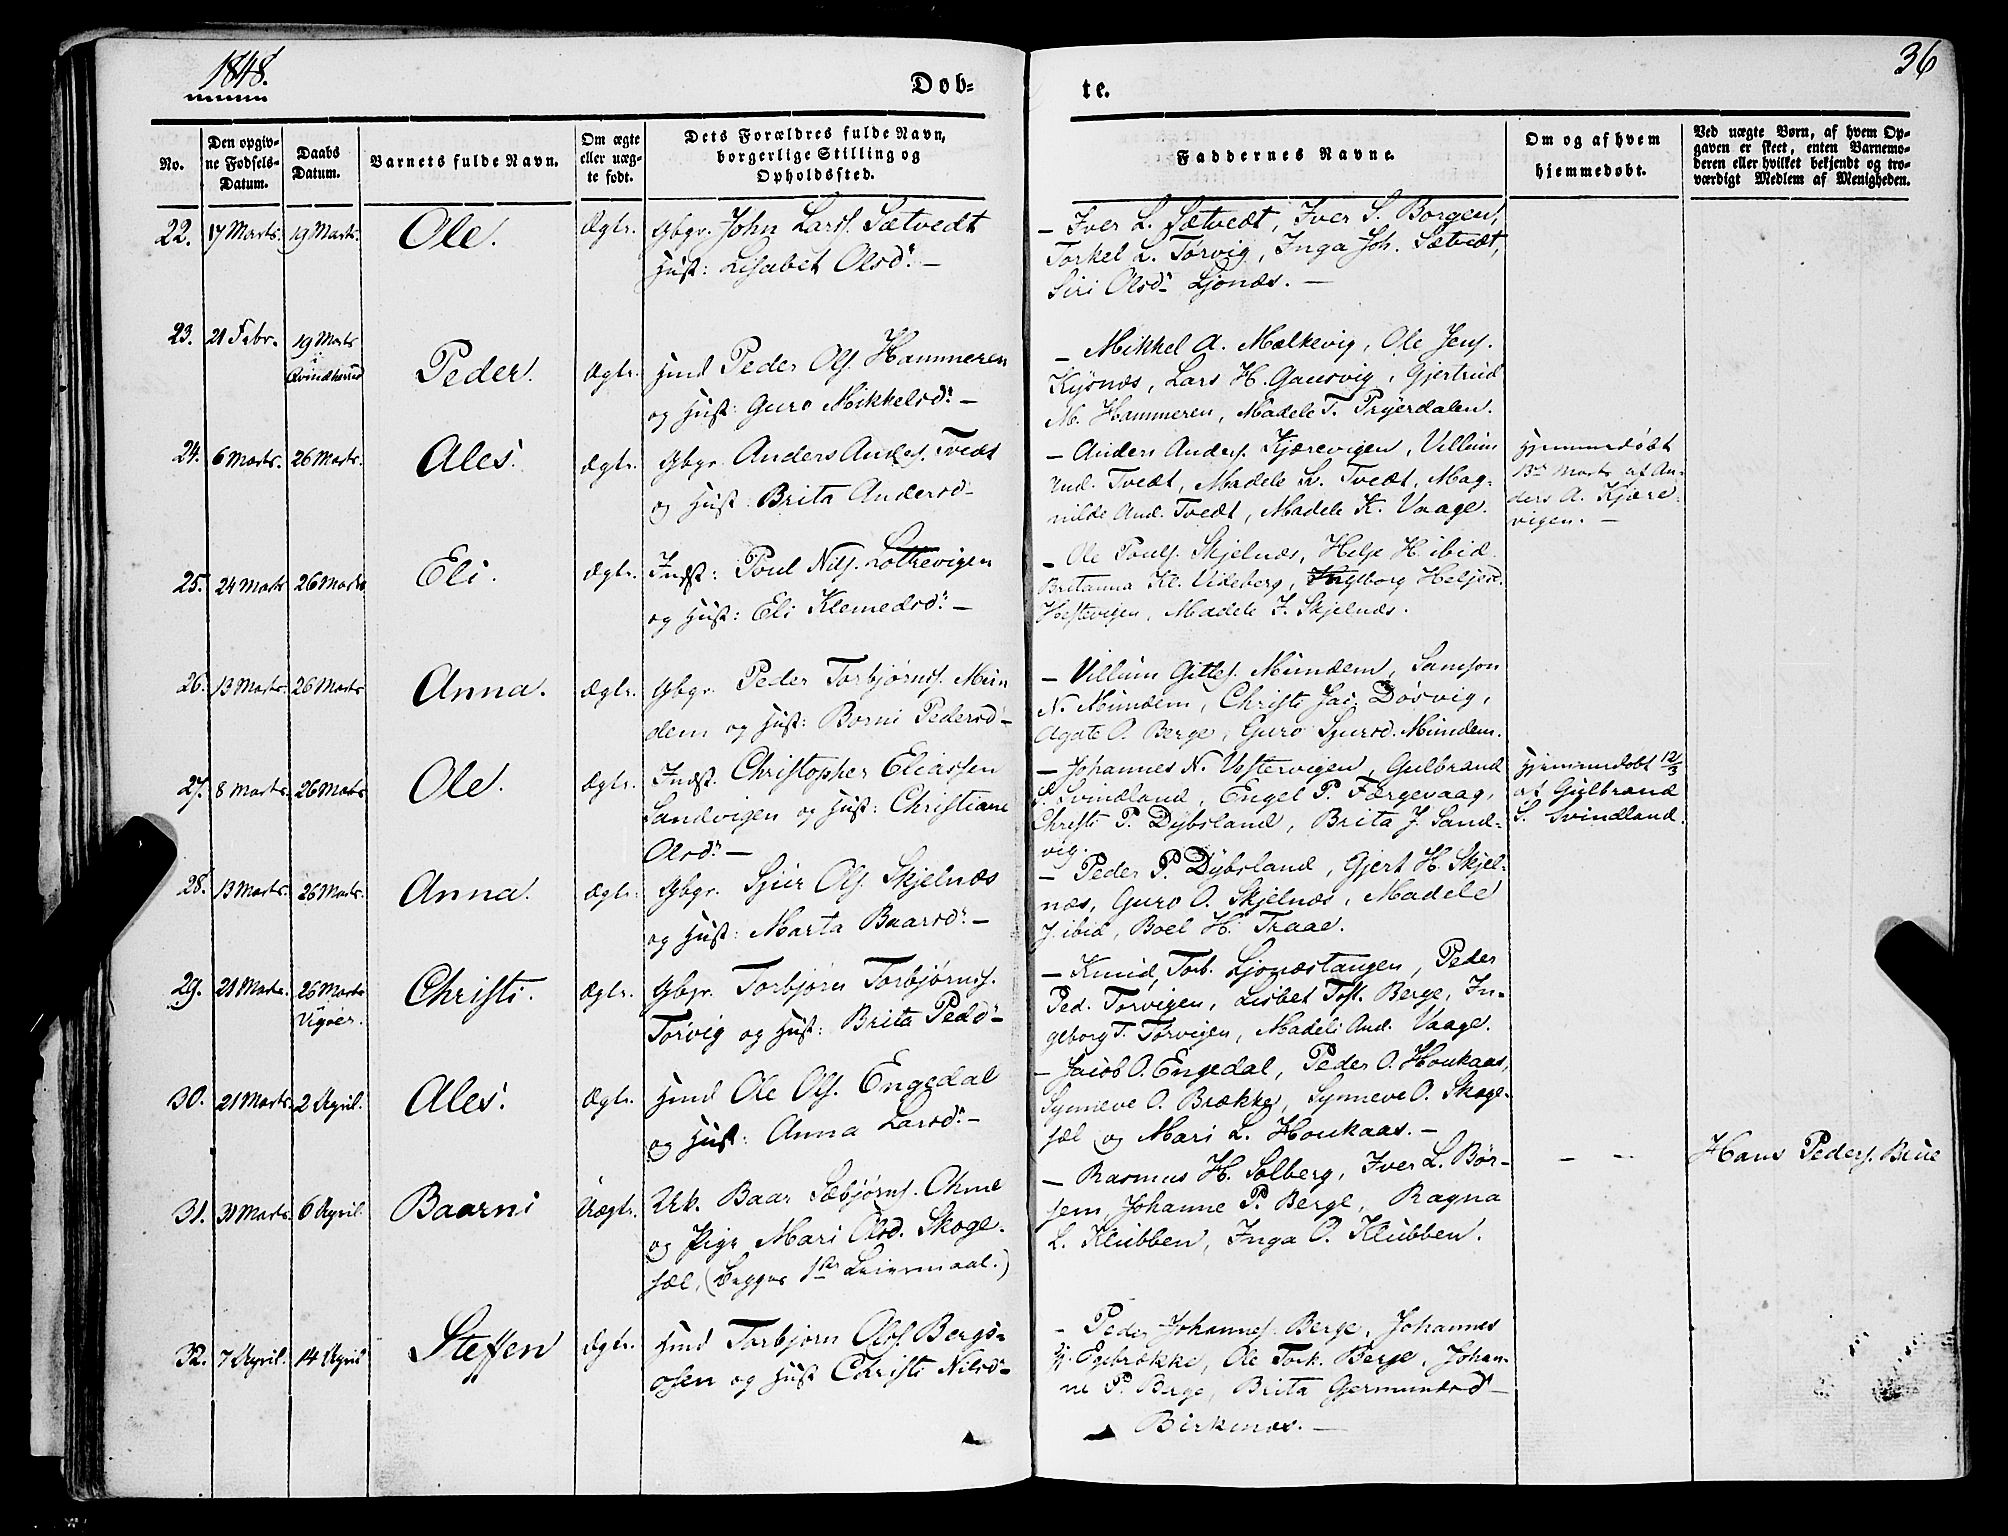 1848.
36
Døb-
te.
No.
Den opgiv-
ne Fødsels-
Datum.
Daabs
Datum.
Barnets fulde Navn.
Om ægte
eller uæg-
te født.
Dets Forældres fulde Navn,
borgerlige Stilling og
Opholdssted.
Faddernes Navne.
Om og af hvem
hjemmedøbt.
Ved uægte Børn, af hvem Op-
gaven er skeet, enten Barnemo-
deren eller hvilket bekjendt og tro-
værdigt Medlem af Menigheden.
22. 17 Marts. 19 Marts. Ole. Ægte. Gbgr. John Larss. Sætvedt
Hust: Lisabet Olsdr. —
— Iver L. Sætvedt, Iver S. Borgen,
Torkel L. Tørvig, Inga Joh. Sætvedt,
Siri Olsdr. Ljonæs. —
23. 21 Febr. 19 Marts
i
Qvindherred
Peder. Ægte. Hmd Peder Ols. Hammeren
og Hust: Guro Mikkelsdr. —
— Mikkel A. Mælkevig, Ole Jens.
Kysnæs, Lars H. Gausvig, Gjertrud
M. Hammeren, Madele T. Pryerdalen.
24. 6 Marts. 26 Marts. Ales. Ægte. Gbgr. Anders Anders. Tvedt
og Hust: Brita Andersd. —
— Anders Anders. Kjærevigen, Villum
And. Tvedt, Madele L. Tvedt, Mag-
nilde And. Tvedt, Madele K. Vaage.
Hjemmedøbt
13de Marts af An-
ders A. Kjære-
vigen. —
25. 24 Marts 26 Marts Eli. Ægte. Indst: Poul Nils. Lothevigen
og Hust: Eli Klemedsdr. —
— Ole Pouls. Skjelnæs, Helje H. ibid.
Britanna Kl. Videberg, Ingeborg Heljesd.
Vestevigen, Madele J. Skjelnæs.
26. 13 Marts. 26 Marts Anna. Ægte. Gbgr. Peder Torbjørns. Mun
dem og Hust: Borni Pedersd. —
— Villum Gitles. Mundem, Samson
N. Mundem, Christi Jac. Døsvig,
Agate O. Berge, Guro Sjursd. Mundem.
27. 8 Marts. 26 Marts Ole. Ægte. Indst. Christopher Eliassen
Sandvigen og Hust: Christiane
Olsdr. —
— Johannes N. Vestervigen, Gulbrand
S. Svindland, Engel P. Færgevaag,
Christi P. Dybsland, Brita J. Sand-
vig.
Hjemmedøbt 12/3
af Gulbrand
S. Svindland.
28. 13 Marts. 26 Marts. Anna. Ægte. Gbgr. Sjur Ols. Skjelnæs
og Hust: Marta Baarsdr. —
— Peder P. Dybsland, Gjert H. Skjel-
næs, Guro O. Skjelnæs, Madele
J. ibid, Boel H. Traae.
29. 21 Marts. 26 Marts
Vigøer.
Christi. Ægte. Gbgr. Torbjørn Torbjørns.
Torvig og Hust: Brita Pedd. —
— Knud Torb. Ljonæstangen, Peder
Ped. Torvigen, Lisbet Tost. Berge, In-
geborg T. Tørvigen, Madeli And. Vaage.
30. 21 Marts. 2 April. Ales. Ægte. Hmd Ole Ols. Engedal
og Hust: Anna Larsdr. —
— Jacob O. Engedal, Peder O. Houkaas,
Synneve O. Brække, Synneve O. Skoge-
sæl og Mari L. Houkaas. —
31. 31 Marts. 6 April. Baarni Uægte. Urk. Baar Sæbjørns. Ohme
og Pige Mari Olsd. Skoge-
sæl. (Begges 1ste Leiermaal.)
— Rasmus H. Solberg, Iver L. Bør-
sem, Johanne P. Berge, Ragna
L. Klubben, Inga O. Klubben.
— —
Hans Peders. Brue
32. 7 April. 14 April Steffen Ægte. Hmd Torbjørn Ols. Bergs-
osen og Hust Christi Nilsd. —
— Peder Johannes. Berge, Johannes
Egebrøkke, Ole Tork. Berge, Johan-
ne P. Berge, Brita Germundsd. —
Birkenæs. —